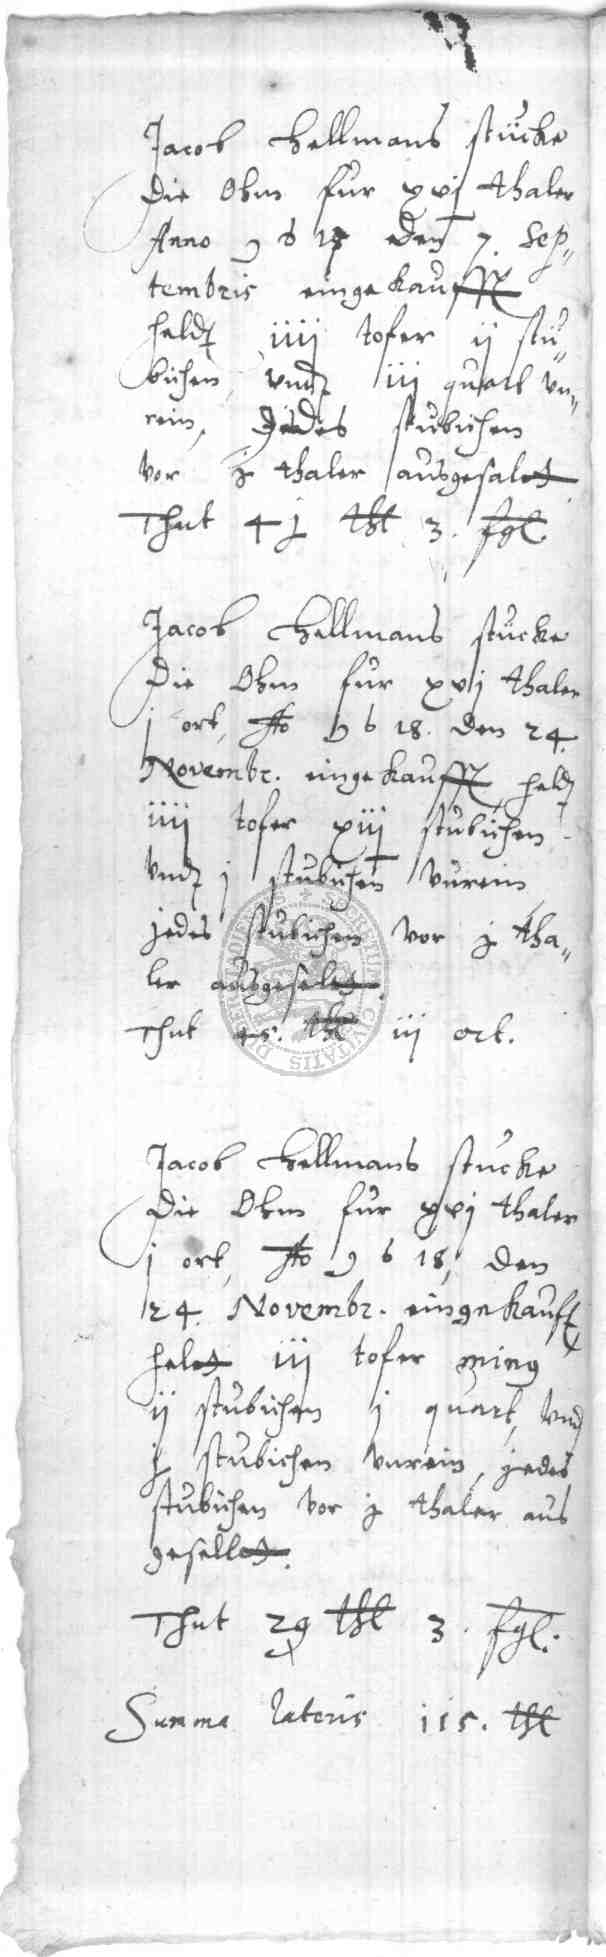 Jacob Hellmans stücke
Die Ohm fur xvj thaler
Anno 1618 den 7. Sep„
tembris eingekaufft
heldt iiij tofer ij stü„
bichen, vndt iij quart vn„
rein, Jedes stubichen
vor j thaler ausgesalet
Thut 41 thl 3. fgl.
Jacob Hellmans stücke
Die Ohm fur xvj thaler
j ort, Ao 1618. den 24.
Novembr. eingekaufft, heldt
iiij tofer xiij stubichen
vndt j stubichen vnrein
jedes stubichen vor j tha„
ler ausgesalet.
Thut 45. thl iij ort.
Jacob Hellmans stucke
Die Ohm fur xvj thaler
j ort, Ao 1618, den
24. Novembr. eingekaufft
helet iij tofer ming
ij stubichen j quart, vnd
j stubichen vnrein, jedes
stubichen vor j thaler aus
gesellet.
Thut 29 thl 3. fgl.
Summa lateris 115. thl
SECRETUM CIVITATIS